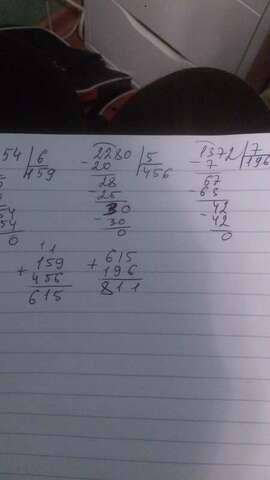 54 6 2280 5 1372 7
159 - 20 456 - 7 196
28 67
- 25 - 63
54 30 42
54 - 30 - 42
0 0 0
1 1
+ 159 + 615
456 196
615 811